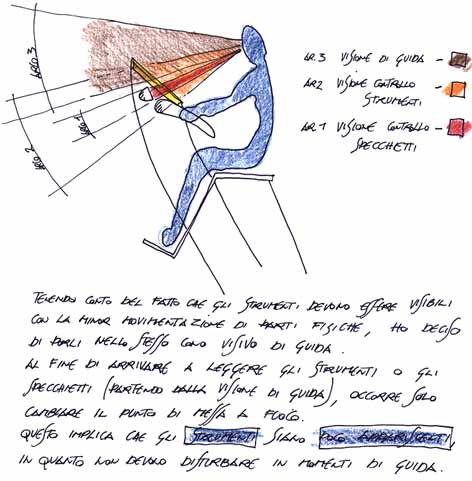 ARCO 3
ARCO 2
ARCO 1
AR.3 VISIONE DI GUIDA -
AR2 VISIONE CONTROLLO -
STRUMENTI
AR.1 VISIONE CONTROLLO -
SPECCHIETTI
TENENDO CONTO DEL FATTO CHE GLI STRUMENTI DEVONO ESSERE VISIBILI
CON LA MINOR MOVIMENTAZIONE DI PARTI FISICHE, HO DECISO
DI PORLI NELLO STESSO CONO VISIVO DI GUIDA.
AL FINE DI ARRIVARE A LEGGERE GLI STRUMENTI O GLI
SPECCHIETTI (PARTENDO DALLA VISIONE DI GUIDA), OCCORRE SOLO
CAMBIARE IL PUNTO DI MESSA A FUOCO.
QUESTO IMPLICA CHE GLI STRUMENTI SIANO POCO APPARISCENTI,
IN QUANTO NON DEVONO DISTURBARE IN MOMENTI DI GUIDA.